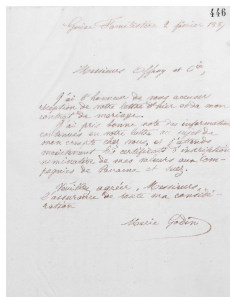 446
Guise Familistère 2 février 189
Messieurs Offroy et Cie,
J'ai l'honneur de vous accuser
réception de votre lettre d'hier et de mon
contrat de mariage.
J'ai pris bonne note des informations
contenues en votre lettre au sujet de
mon compte chez vous, et j'attends
le certificat d'inscription
nominative de mes valeurs aux Com-
pagnies de Panama et Suez.
Veuillez agréer, Messieurs,
l'assurance de toute ma considé-
ration
Marie Godin